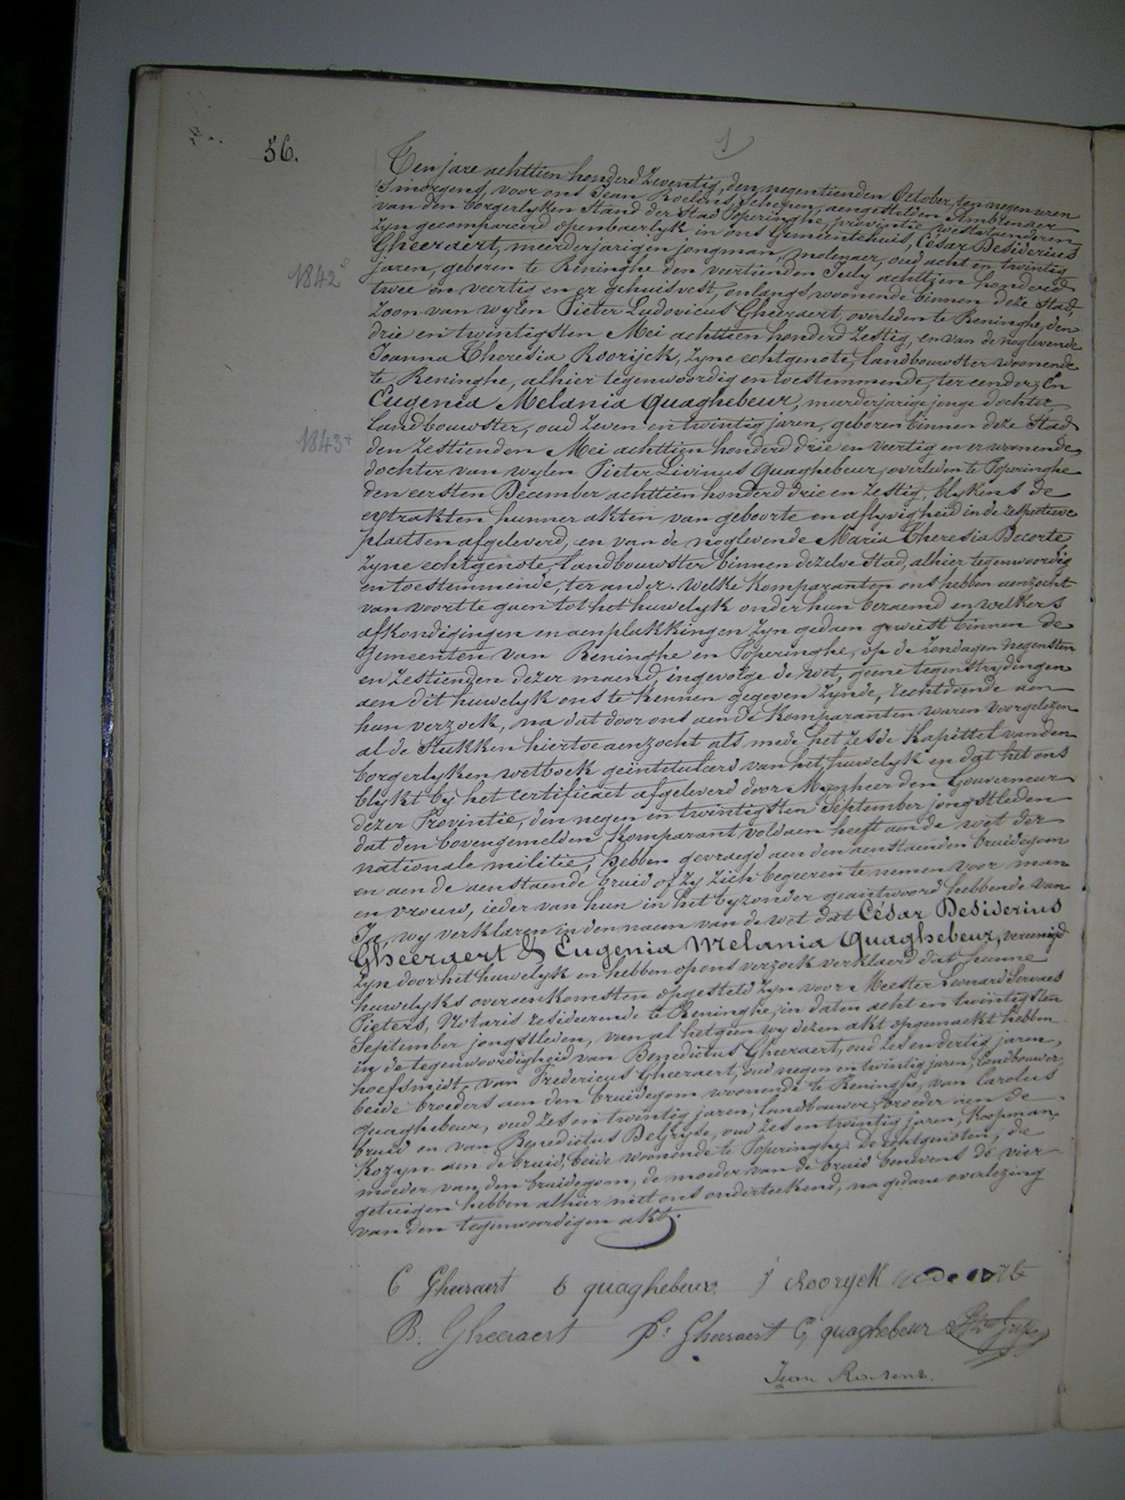 56.
1
Ten jare achttien honderd zeventig, den negentienden October, ten negen uren
's morgens, voor ons Jean Roelens, Schepen, aengestelden Ambtenaer
van den borgerlyken Stand der Stad Poperinghe, provintie Westvlaenderen,
zyn gecompareerd openbaerlyk in ons Gemeentehuis, César Desiderius
Gheeraert, meerderjarigen jongman, molenaer, oud acht en twintig
jaren, geboren te Reninghe den veertienden July achttien honderd
1842
twee en veertig en er gehuisvest, onlangs woonende binnen deze Stad,
Zoon van wylen Pieter Ludovicus Gheeraert, overleden te Reninghe, den
drie en twintigsten Mei achttien honderd zestig, en van de noglevende
Joanna Theresia Roorijck, zyne echtgenote, landbouwster woonende
te Reninghe, alhier tegenwoordig en toestemmende, ter eender; En
Eugenia Melania Quaghebeur, meerderjarige jonge dochter,
landbouwster, oud zeven en twintig jaren, geboren binnen deze Stad
1843+
den zestienden Mei achttien honderd drie en veertig en er woonende,
dochter van wylen Pieter Livinus Quaghebeur, overleden te Poperinghe
den eersten December achttien honderd drie en zestig, blykens de
extrakten hunner akten van geboorte en aflyvigheid in de respectieve
plaetsen afgeleverd, en van de noglevende Maria Theresia Decorte
zyne echtgenote, landbouwster binnen dezelve Stad, alhier tegenwoordig
en toestemmende, ter ander. Welke Komparanten ons hebben aenzocht
van voort te gaen tot het huwelyk onder hun beraemd en welkers
afkondigingen en aenplakkingen zyn gedaen geweest binnen de
Gemeenten van Reninghe en Poperinghe, op de zondagen negensten
en zestienden dezer maend, ingevolge de wet, geene tegenstrydingen
aen dit huwelyk ons te kennen gegeven zynde, rechtdoende aen
hun verzoek, na dat door ons aen de Komparanten waren voorgelezen
al de Stukken hiertoe aenzocht als mede het zesde Kapittel van den
borgerlyken wetboek geïntituleerd van het huwelyk en dat het ons
blykt by het certificaet afgeleverd door Mynheer den Gouverneur
dezer Provintie, den negen en twintigsten September jongstleden
dat den bovengemelden Komparant voldaen heeft aen de wet der
nationale militie; hebben gevraegd aen den aenstaenden bruidegom
en aen de aenstaende bruid of zy zich begeeren te nemen voor man
en vrouw, ieder van hun in het byzonder geantwoord hebbende van
Ja, wy verklaren in den naem van de wet dat César Desiderius
Gheeraert & Eugenia Melania Quaghebeur, vereenigd
zyn door het huwelyk en hebben op ons verzoek verklaerd dat hunne
huwelyks overeenkomsten opgesteld zyn voor Meester Leonard Servaes
Pieters, Notaris resideerende te Reninghe, in daten acht en twintigsten
September jongstleden, van al hetgeen wy dezen akt opgemaekt hebben
in de tegenwoordigheid van Benedictus Gheeraert, oud zes en dertig jaren,
hoefsmidt, van Fredericus Gheeraert, oud negen en twintig jaren, landbouwer,
beide broeders aen den bruidegom woonende te Reninghe, van Carolus
Quaghebeur, oud zes en twintig jaren, landbouwer, broeder aen de
bruid en van Benedictus Delfryse, oud zes en twintig jaren, Koopman,
Kozyn aen de bruid, beide woonende te Poperinghe. De echtgenoten, de
moeder van den bruidegom, de moeder van de bruid benevens de vier
getuigen hebben alhier met ons onderteekend, na gedane overlezing
van den tegenwoordigen akt.
C Gheeraert E quaghebeur. J Roorijck
B. Gheeraert Fs Gheeraert C, quaghebeur
Jean Roelens.